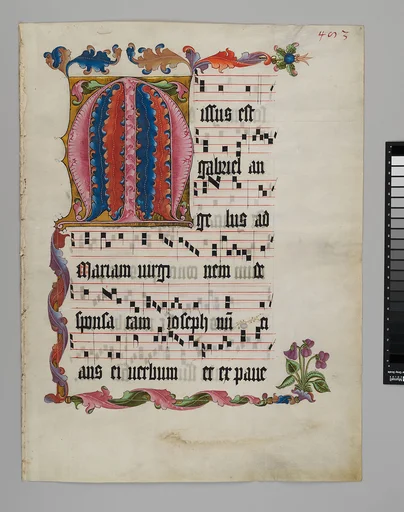 4073
Missus est
gabriel an
ge lus ad
Mariam uirgi nem de
sponsa tam ioseph nūti
ans ei uerbum et ex paue